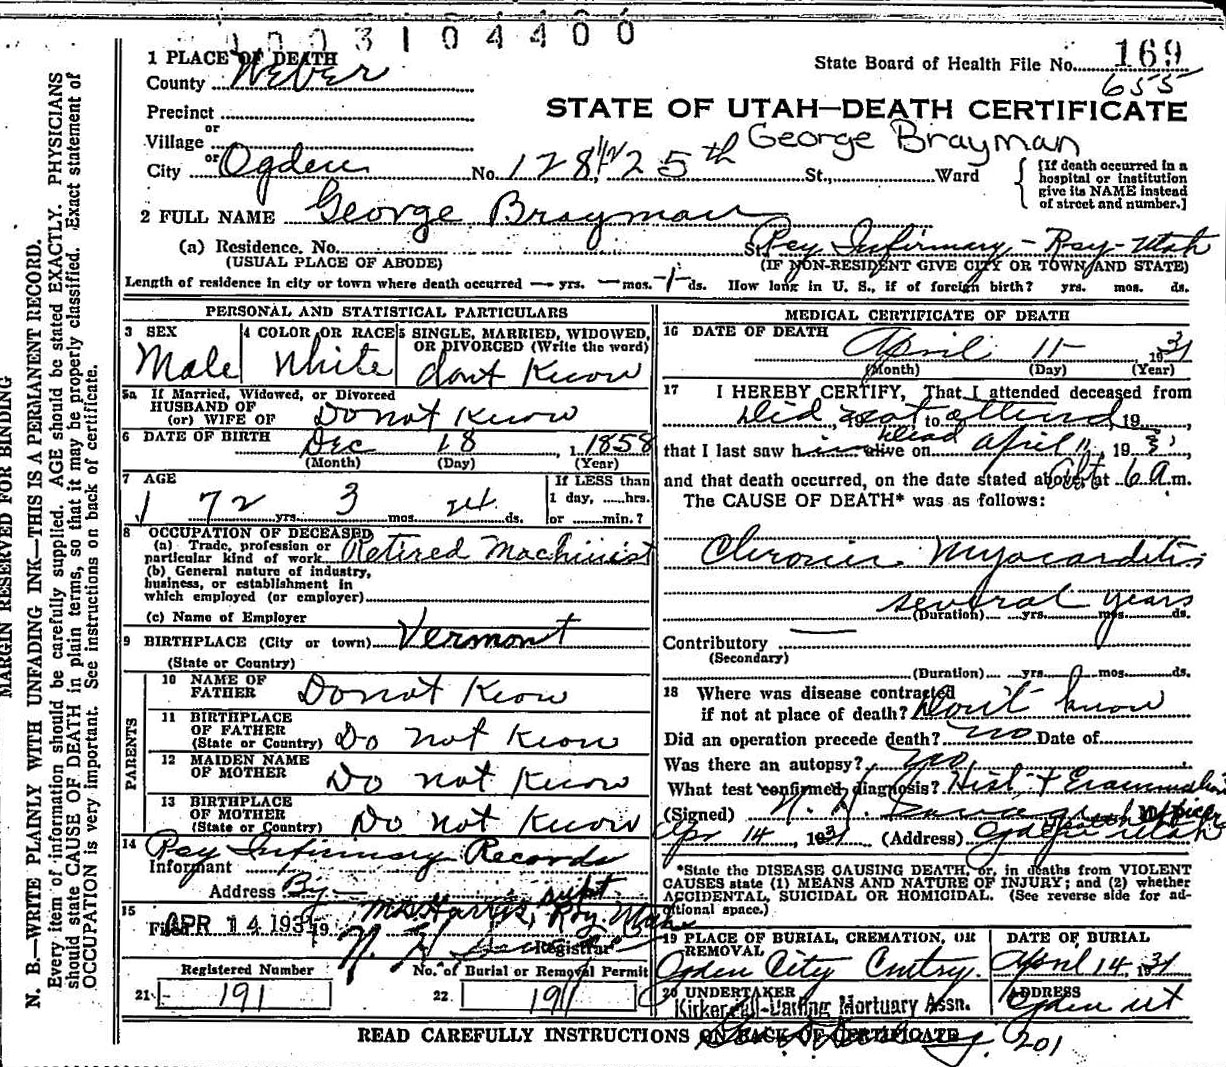 1003104400
1 PLACE OF DEATH
County Weber
State Board of Health File No. 169
655
Precinct
or
Village
or
City Ogden No. 128 1/2 25th St., Ward
STATE OF UTAH—DEATH CERTIFICATE
George Brayman
[If death occurred in a
hospital or institution
give its NAME instead
of street and number.]
2 FULL NAME George Brayman
(a) Residence. No. St. Roy Infirmary - Roy - Utah
(USUAL PLACE OF ABODE)
(IF NON-RESIDENT GIVE CITY OR TOWN AND STATE)
Length of residence in city or town where death occurred — yrs. — mos. -1- ds. How long in U. S., if of foreign birth? yrs. mos. ds.
PERSONAL AND STATISTICAL PARTICULARS
3 SEX
Male
4 COLOR OR RACE
White
5 SINGLE, MARRIED, WIDOWED,
OR DIVORCED (Write the word)
dont Know
5a If Married, Widowed, or Divorced
HUSBAND OF
(or) WIFE OF Do not Know
6 DATE OF BIRTH Dec 18 1858
(Month) (Day) (Year)
7 AGE
72 yrs. 3 mos. 24 ds.
If LESS than
1 day, ......hrs.
or ......min.?
8 OCCUPATION OF DECEASED
(a) Trade, profession or
particular kind of work Retired Machinist
(b) General nature of industry,
business, or establishment in
which employed (or employer)
(c) Name of Employer
9 BIRTHPLACE (City or town) Vermont
(State or Country)
PARENTS
10 NAME OF
FATHER Do not Know
11 BIRTHPLACE
OF FATHER
(State or Country) Do not Know
12 MAIDEN NAME
OF MOTHER Do not Know
13 BIRTHPLACE
OF MOTHER
(State or Country) Do not Know
14
Informant Roy Infirmary Records
Address By—
Harris, supt. Roy, Utah
15
Filed APR 14 1931 19
Registrar
Registered Number
21 191
No. of Burial or Removal Permit
22 191
MEDICAL CERTIFICATE OF DEATH
16 DATE OF DEATH
April 11 1931
(Month) (Day) (Year)
17 I HEREBY CERTIFY, That I attended deceased from
Did not attend, 19 to 19
that I last saw him alive on dead April 11, 1931,
and that death occurred, on the date stated above, at abt 6 a.m.
The CAUSE OF DEATH* was as follows:
Chronic Myocarditis
several years
(Duration) yrs. mos. ds.
Contributory
(Secondary)
(Duration) yrs. mos. ds.
18 Where was disease contracted
if not at place of death? Don't know
Did an operation precede death? no Date of
Was there an autopsy? no
What test confirmed diagnosis? Hist. + Examination
(Signed) N. H.
Apr 14, 1931 (Address) Ogden Utah
*State the DISEASE CAUSING DEATH, or, in deaths from VIOLENT
CAUSES state (1) MEANS AND NATURE OF INJURY; and (2) whether
ACCIDENTAL, SUICIDAL OR HOMICIDAL. (See reverse side for ad-
ditional space.)
19 PLACE OF BURIAL, CREMATION, OR
REMOVAL
Ogden City Cmtry.
DATE OF BURIAL
April 14, 31
20 UNDERTAKER
Kirkendall-Darling Mortuary Assn.
ADDRESS
Ogden Ut
READ CAREFULLY INSTRUCTIONS ON BACK OF CERTIFICATE
201
MARGIN RESERVED FOR BINDING
N. B.—WRITE PLAINLY WITH UNFADING INK—THIS IS A PERMANENT RECORD.
Every item of information should be carefully supplied. AGE should be stated EXACTLY. PHYSICIANS
should state CAUSE OF DEATH in plain terms, so that it may be properly classified. Exact statement of
OCCUPATION is very important. See instructions on back of certificate.